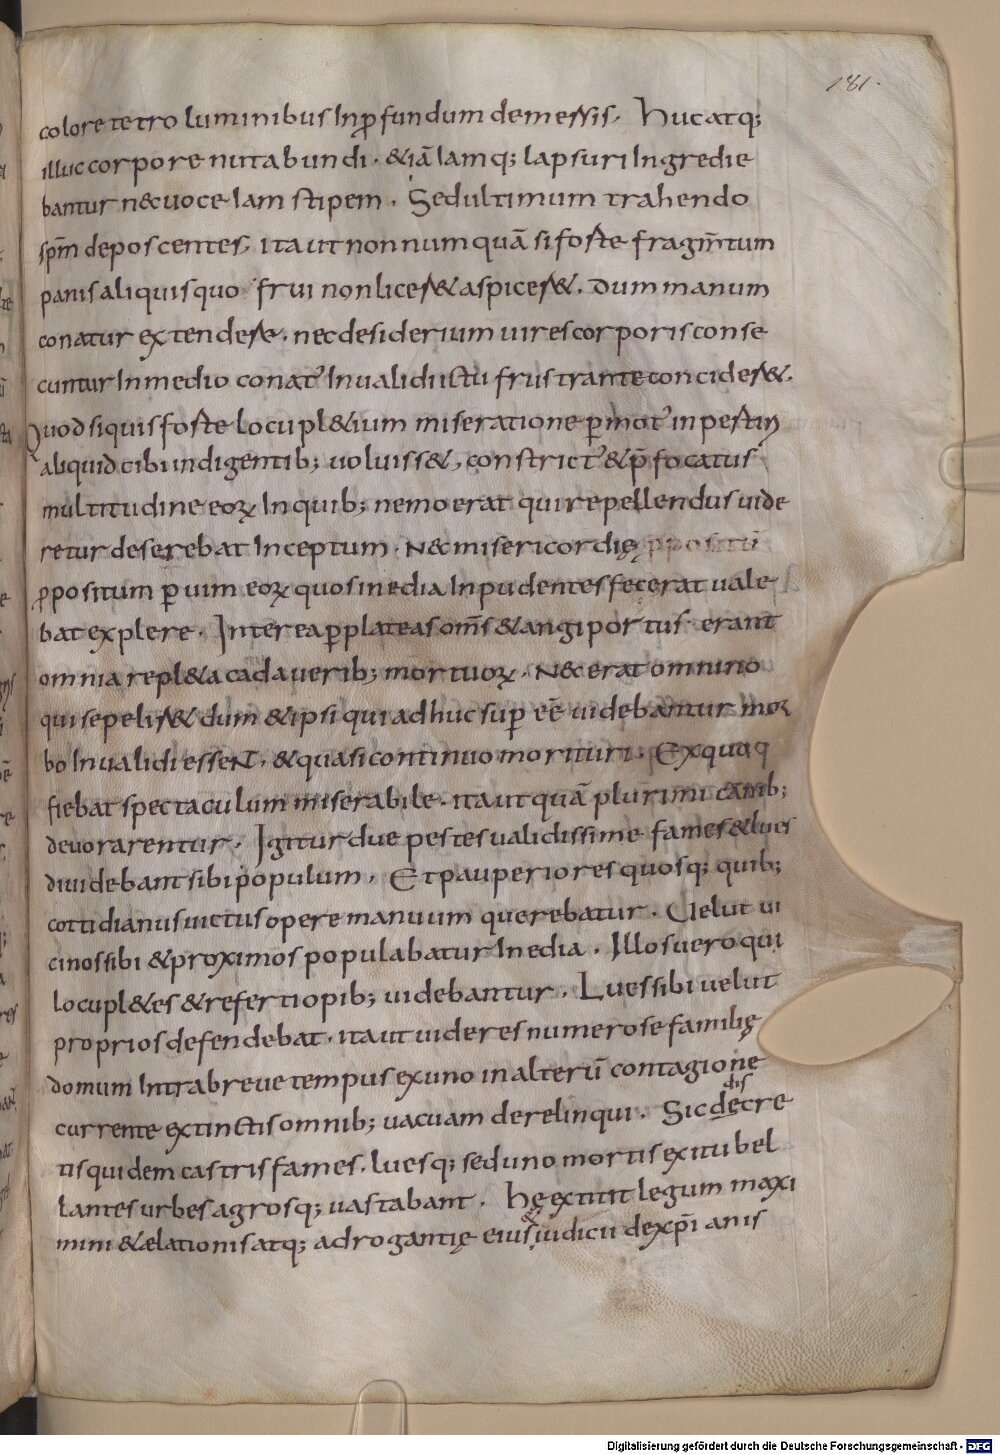 181.
colore tetro luminibus In ꝓfundum demersis. Huc atq;
illuc corpore nutabundi. & iā Iamq; lapsuri Ingredie
bantur n&c uoce Iam stipem. Sed ultimum trahendo
sp̄m deposcentes. ita ut non numquā si forte fragm̄tum
panis aliquis quo frui non licer& aspicer&. Dum manum
conatur extendere. nec desiderium uires corporis conse
cuntur In medio conat᾽ Inualidi ictu frustrante concider&.
Quod si quis forte locupl&ium miseratione p̄mot᾽ inpertiri
aliquid cibi indigentib; uoluiss&, constrict᾽ & p̄focatus
multitudine eoꝝ In quib; nemo erat qui repellendus uide
retur deserebat Inceptum. N&c misericordię ppositū
ꝓpositum ꝑ uim eoꝝ quos inedia Inpudentes fecerat uale
bat explere. Interea ꝑ plateas om̄s & angiportus erant
omnia repl&a cadauerib; mortuoꝝ. N&c erat omnino
qui sepelir& dum & ipsi qui adhuc suꝑ eē uidebantur mor
bo Inualidi essent. & quasi continuo morituri. Ex qua q
fiebat spectaculum miserabile. ita ut quā plurimi canib;
deuorarentur. Igitur due pestes ualidissime fames & lues
diuidebant sibi populum. Et pauperiores quosq; quib;
cottidianus uictus opere manuum querebatur. Uelut ui
cinos sibi & proximos populabatur Inedia. Illos uero qui
locupl&es & referti opib; uidebantur. Lues sibi uelut
proprios defendebat. ita ut uideres numerose familię
domum Intra breue tempus ex uno in alterū contagione
dis
currente extinctis omnib; uacuam derelinqui. Sic decre
tis quidem castris fames. luesq; sed uno mortis exitu bel
lantes urbes agrosq; uastabant. hę extitit legum maxi
&
mini & elationis atq; adrogantię eius iudicii de xp̄i anis
Digitalisierung gefördert durch die Deutsche Forschungsgemeinschaft - DFG